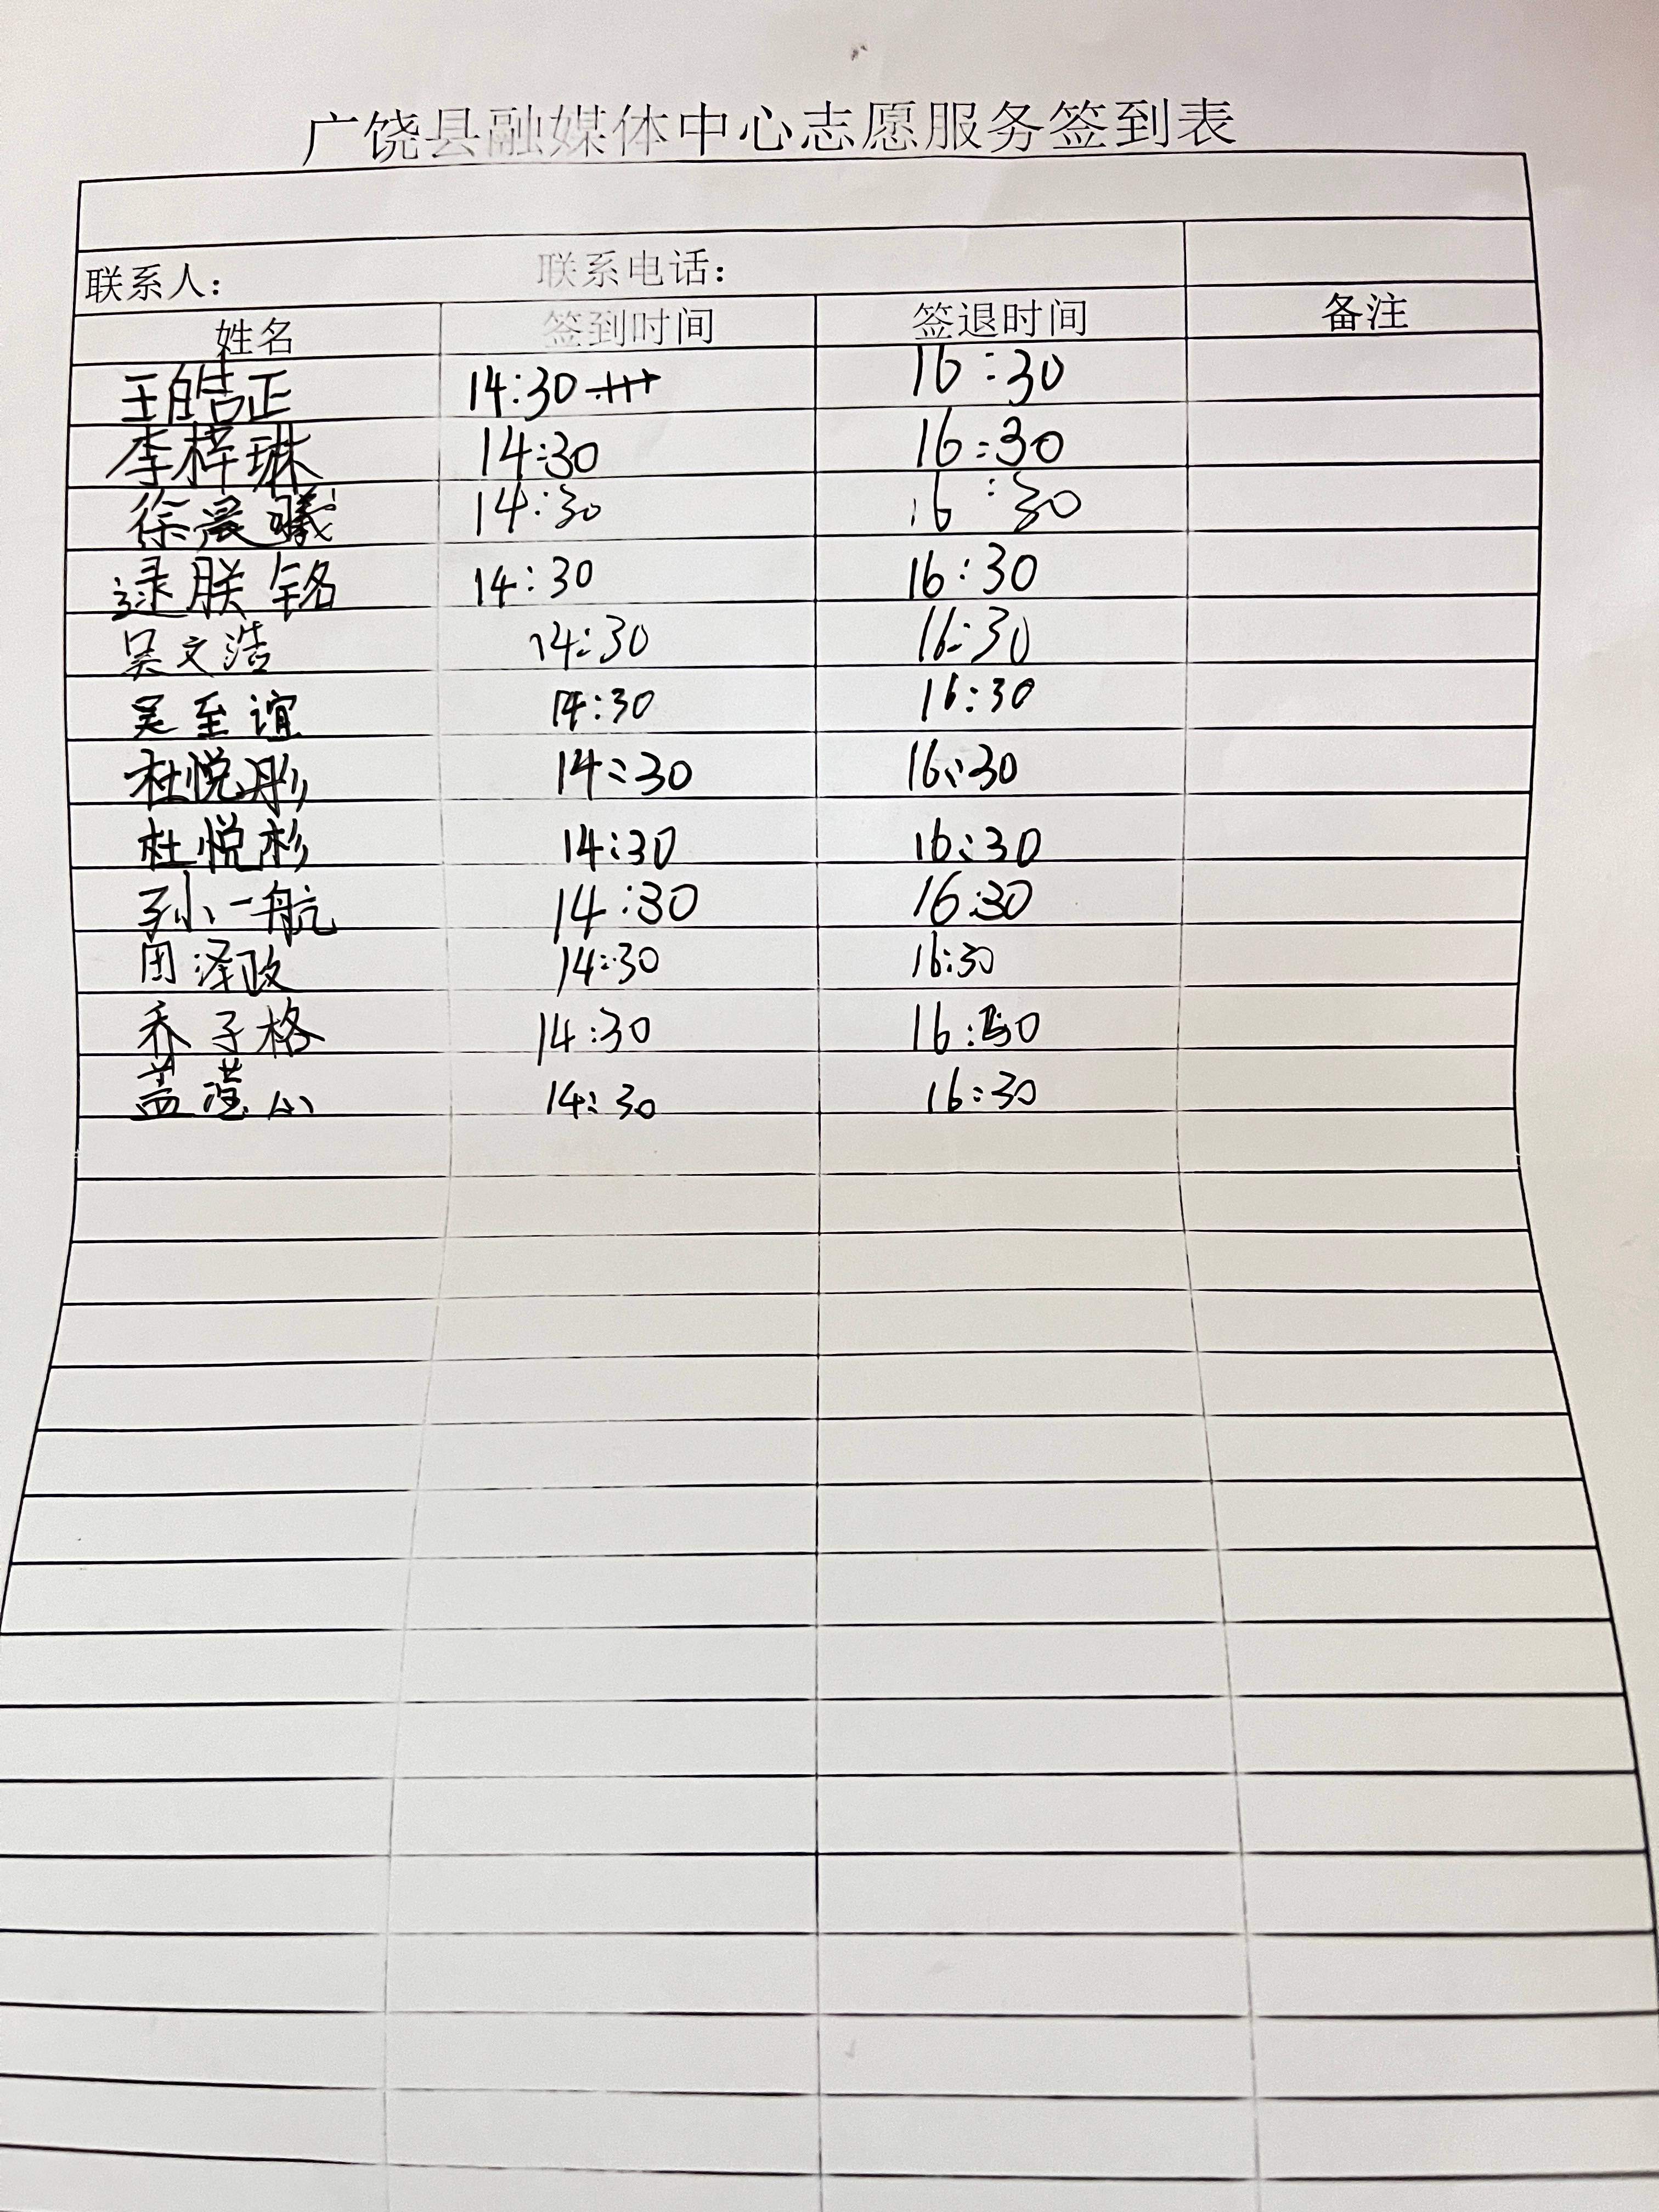 广饶县融媒体中心志愿服务签到表
联系人： 联系电话：
姓名 签到时间 签退时间 备注
王皓正 14:30 16:30
李梓琳 14:30 16:30
徐晨曦 14:30 16:30
逯朕铭 14:30 16:30
吴文浩 14:30 16:30
吴至谊 14:30 16:30
杜悦彤 14:30 16:30
杜悦杉 14:30 16:30
孙一航 14:30 16:30
周泽政 14:30 16:30
乔子格 14:30 16:30
盖滢 14:30 16:30